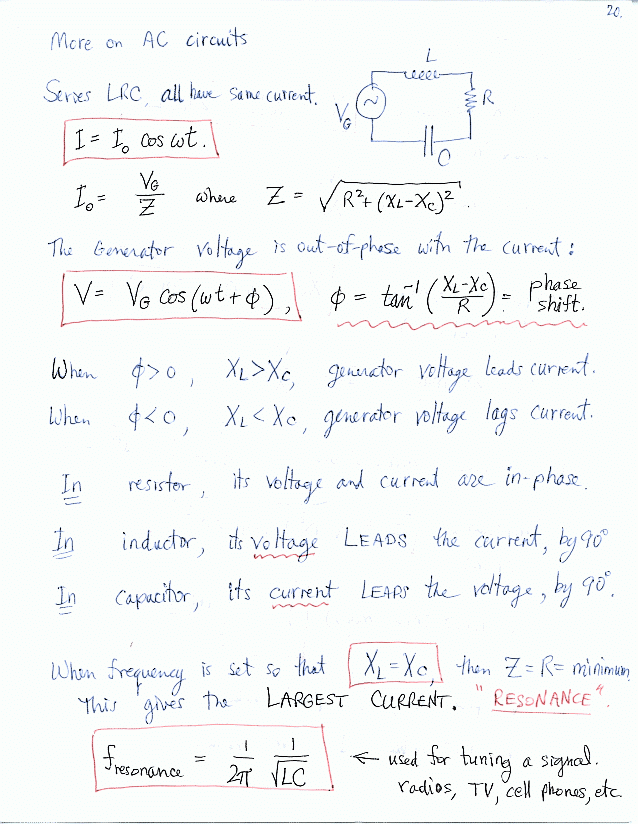 20.
More on AC circuits
Series LRC, all have same current.
L
R
V_G
C
I = I₀ cos ωt.
I₀ = V_G / Z where Z = √(R² + (X_L - X_C)²).
The Generator Voltage is out-of-phase with the current:
V = V_G cos(ωt + φ), φ = tan⁻¹((X_L - X_C)/R) = phase shift.
When φ > 0, X_L > X_C, generator voltage leads current.
When φ < 0, X_L < X_C, generator voltage lags current.
In resistor, its voltage and current are in-phase.
In inductor, its voltage LEADS the current, by 90°
In capacitor, its current LEADS the voltage, by 90°.
When frequency is set so that X_L = X_C, then Z = R = minimum.
This gives the LARGEST CURRENT. "RESONANCE".
f_resonance = 1/2π 1/√LC ← used for tuning a signal.
radios, TV, cell phones, etc.